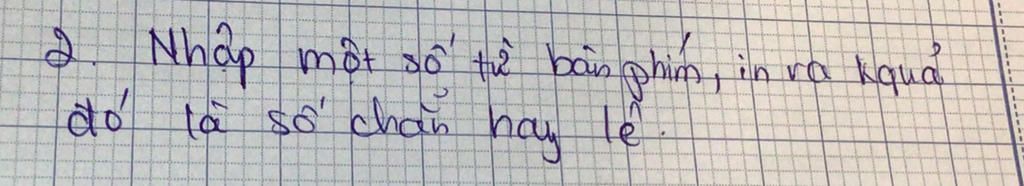 2. Nhập một số từ bàn phím, in ra kquả
đó là số chẵn hay lẻ.